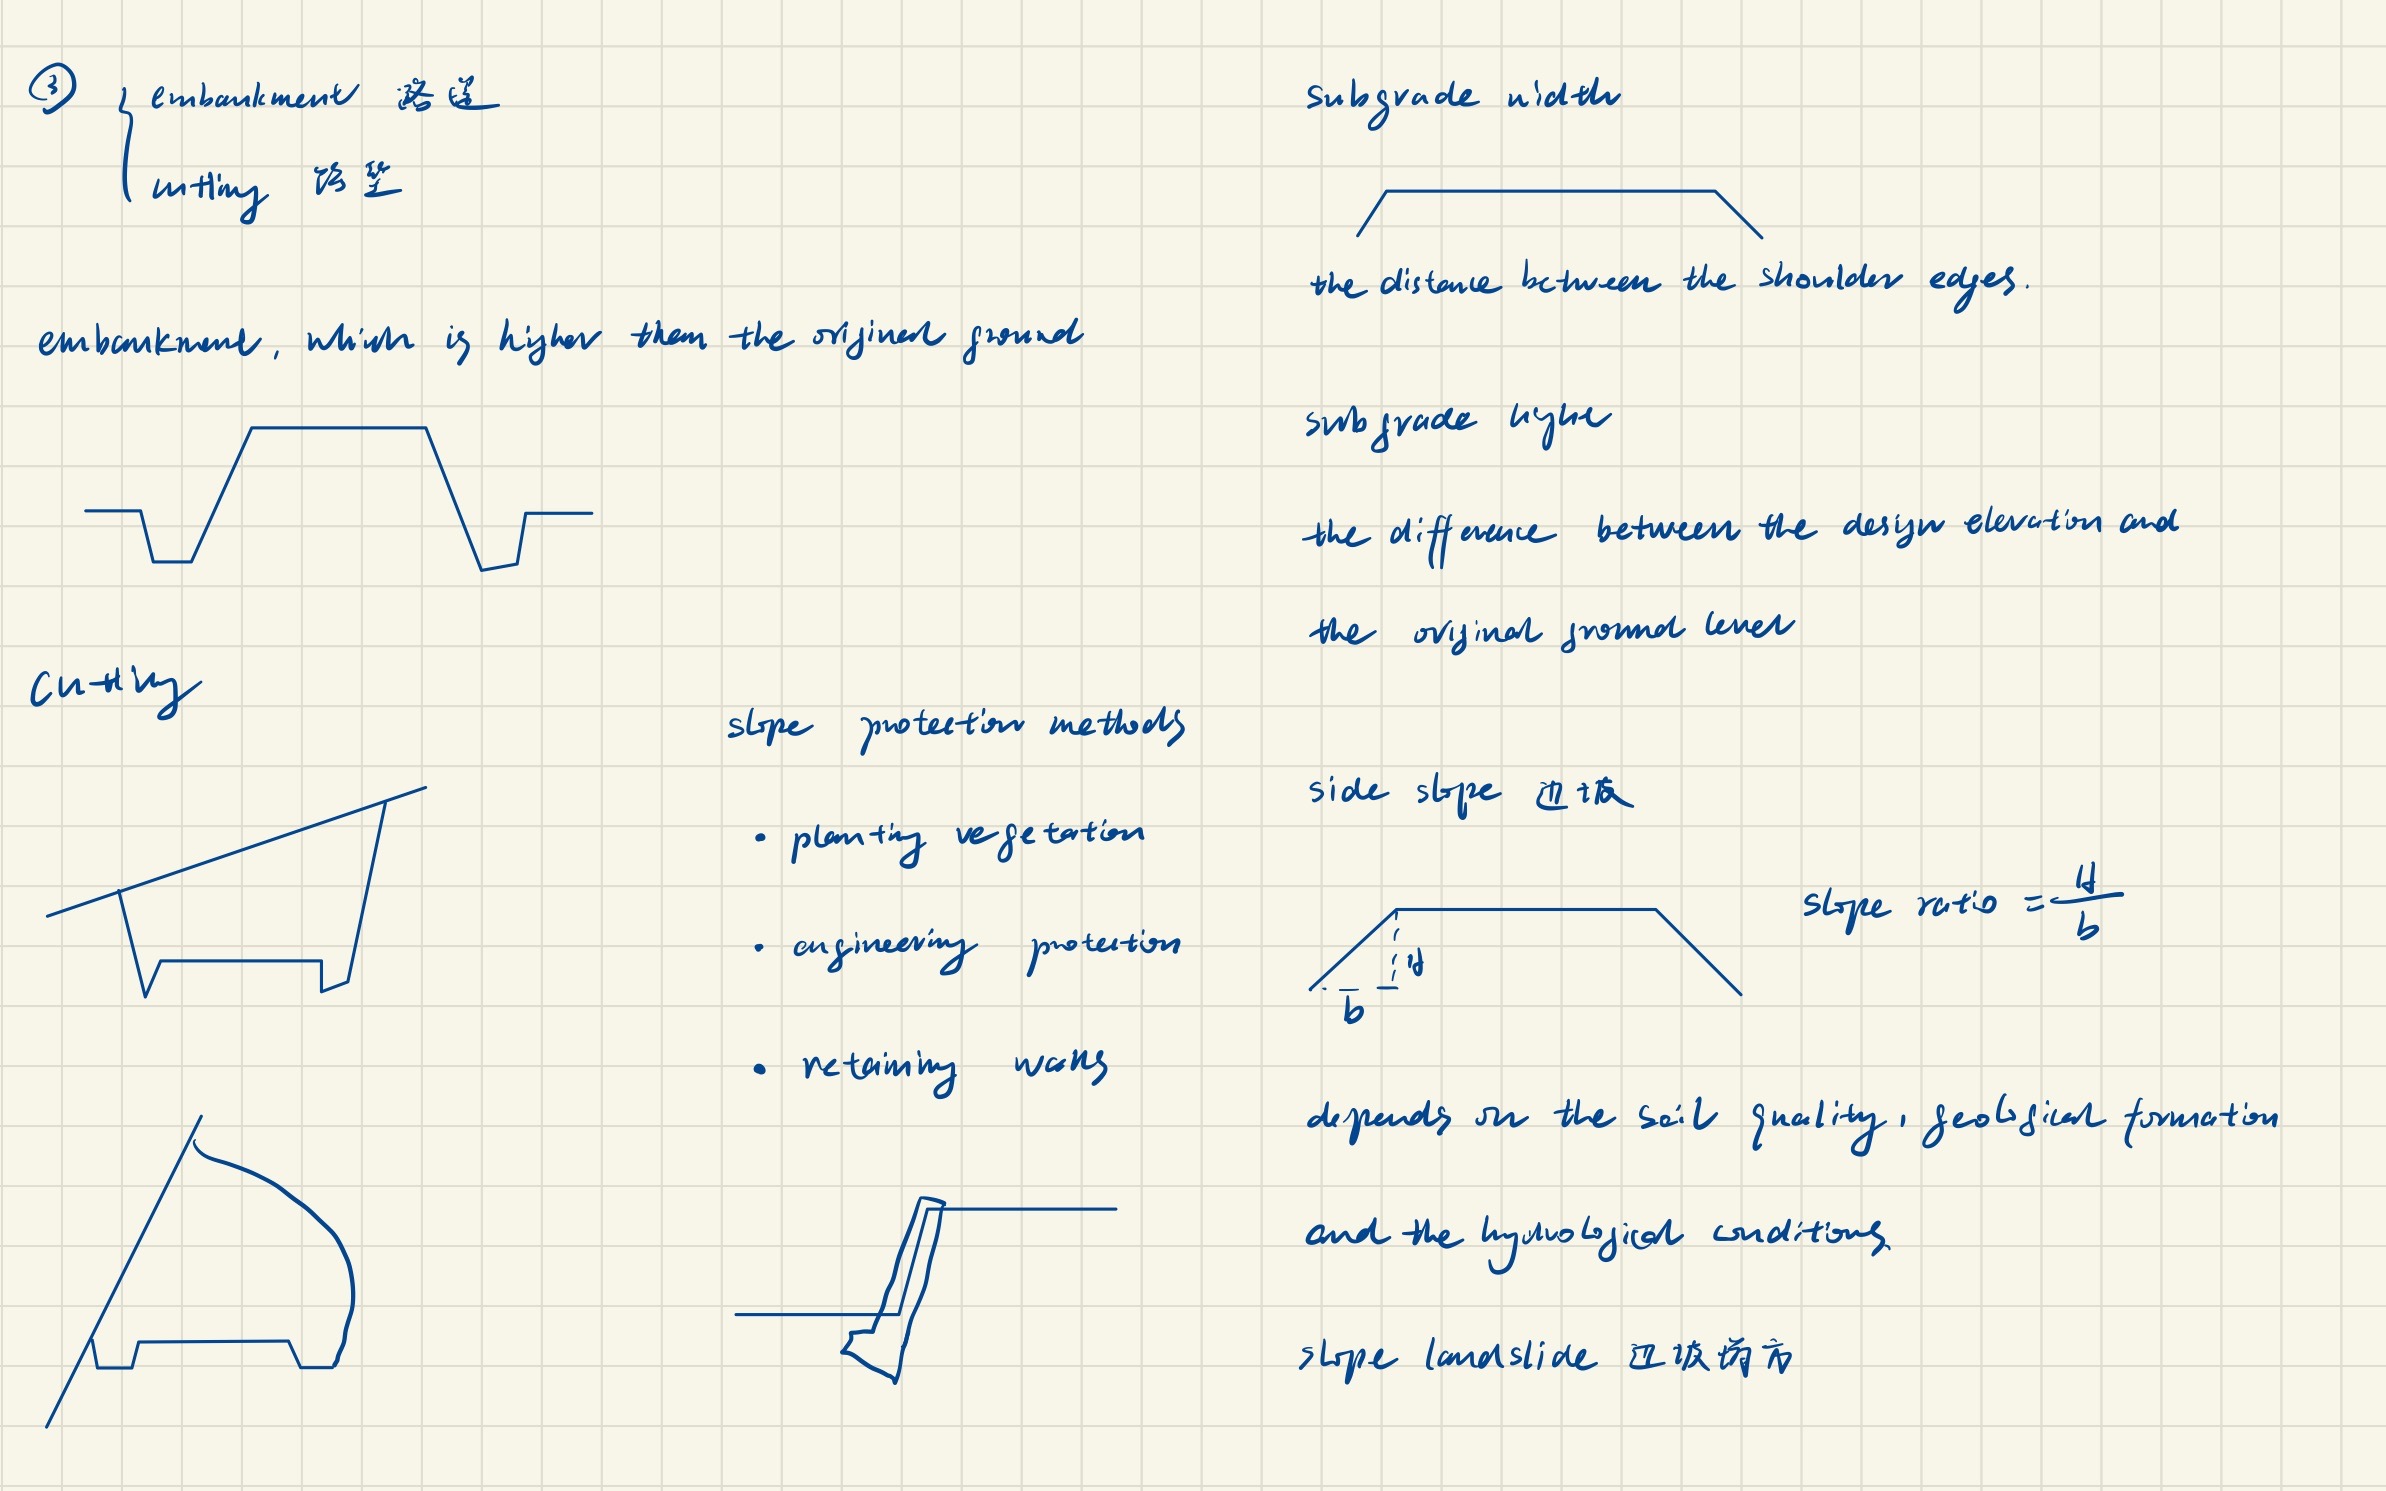 ③
embankment 路堤
cutting 路堑
embankment, which is higher than the original ground
cutting
slope protection methods
• planting vegetation
• engineering protection
• retaining walls
subgrade width
the distance between the shoulder edges.
subgrade
the difference between the design elevation and
the original ground level
side slope 边坡
slope ratio = H/b
H
b
depends on the soil quality, geological formation
and the hydrological conditions
slope landslide 边坡塌方